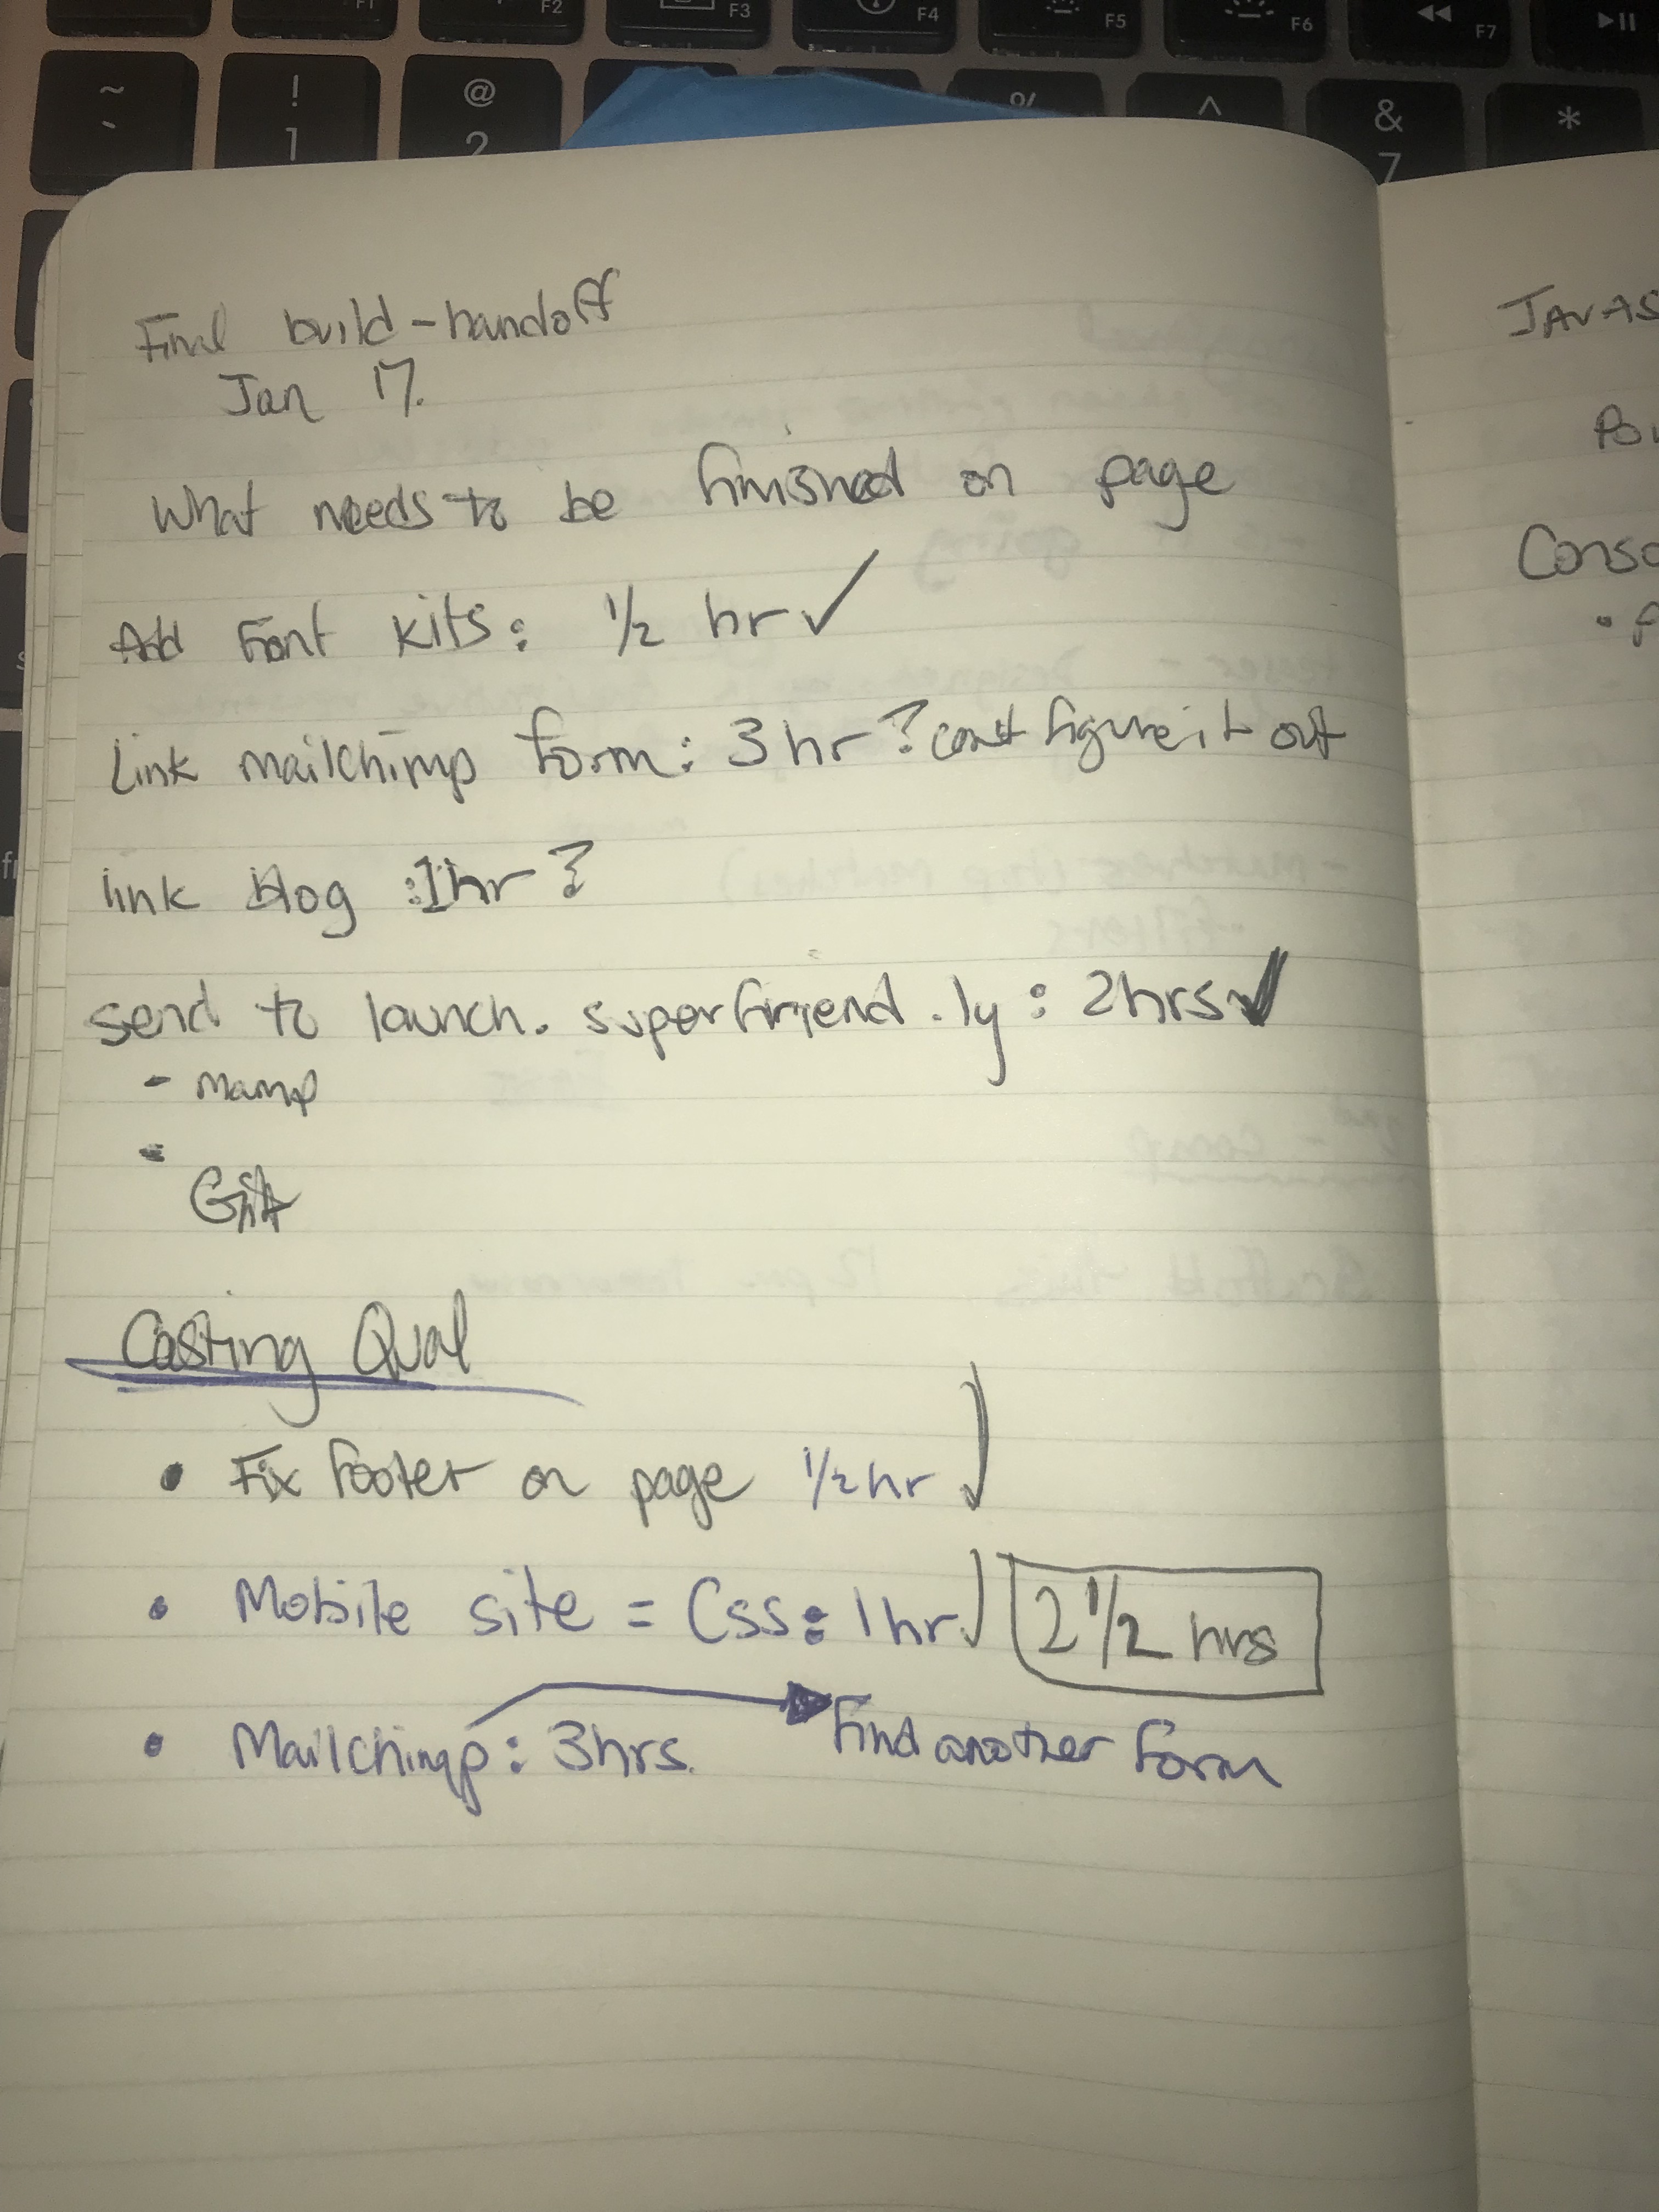 F1 F2 F3 F4 F5 F6 F7
~ ! @ % ^ & *
` 1 2 7
Final build - handoff
Jan 17.
What needs to be finished on page
Add Font kits: 1/2 hr ✓
Link mailchimp form: 3 hr ? can't figure it out
link blog : 1hr ?
send to launch. superfriend.ly : 2hrs ✓
- mamp
- Git
Casting Qual
• Fix footer on page 1/2 hr ✓
• Mobile site = Css: 1hr ✓ 2 1/2 hrs
• Mailchimp: 3hrs. → find another form
JAVAS
Conso